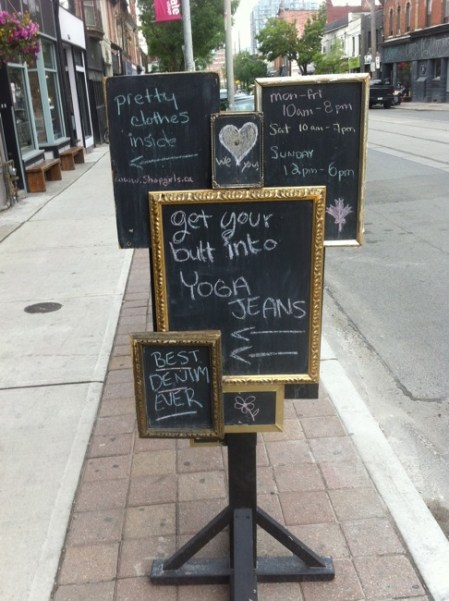 pretty
clothes
inside
www.shopgirls.ca
we you
mon-fri
10am-8pm
Sat 10am-7pm
SUNDAY
12pm-6pm
get your
butt into
YOGA
JEANS
BEST
DENIM
EVER